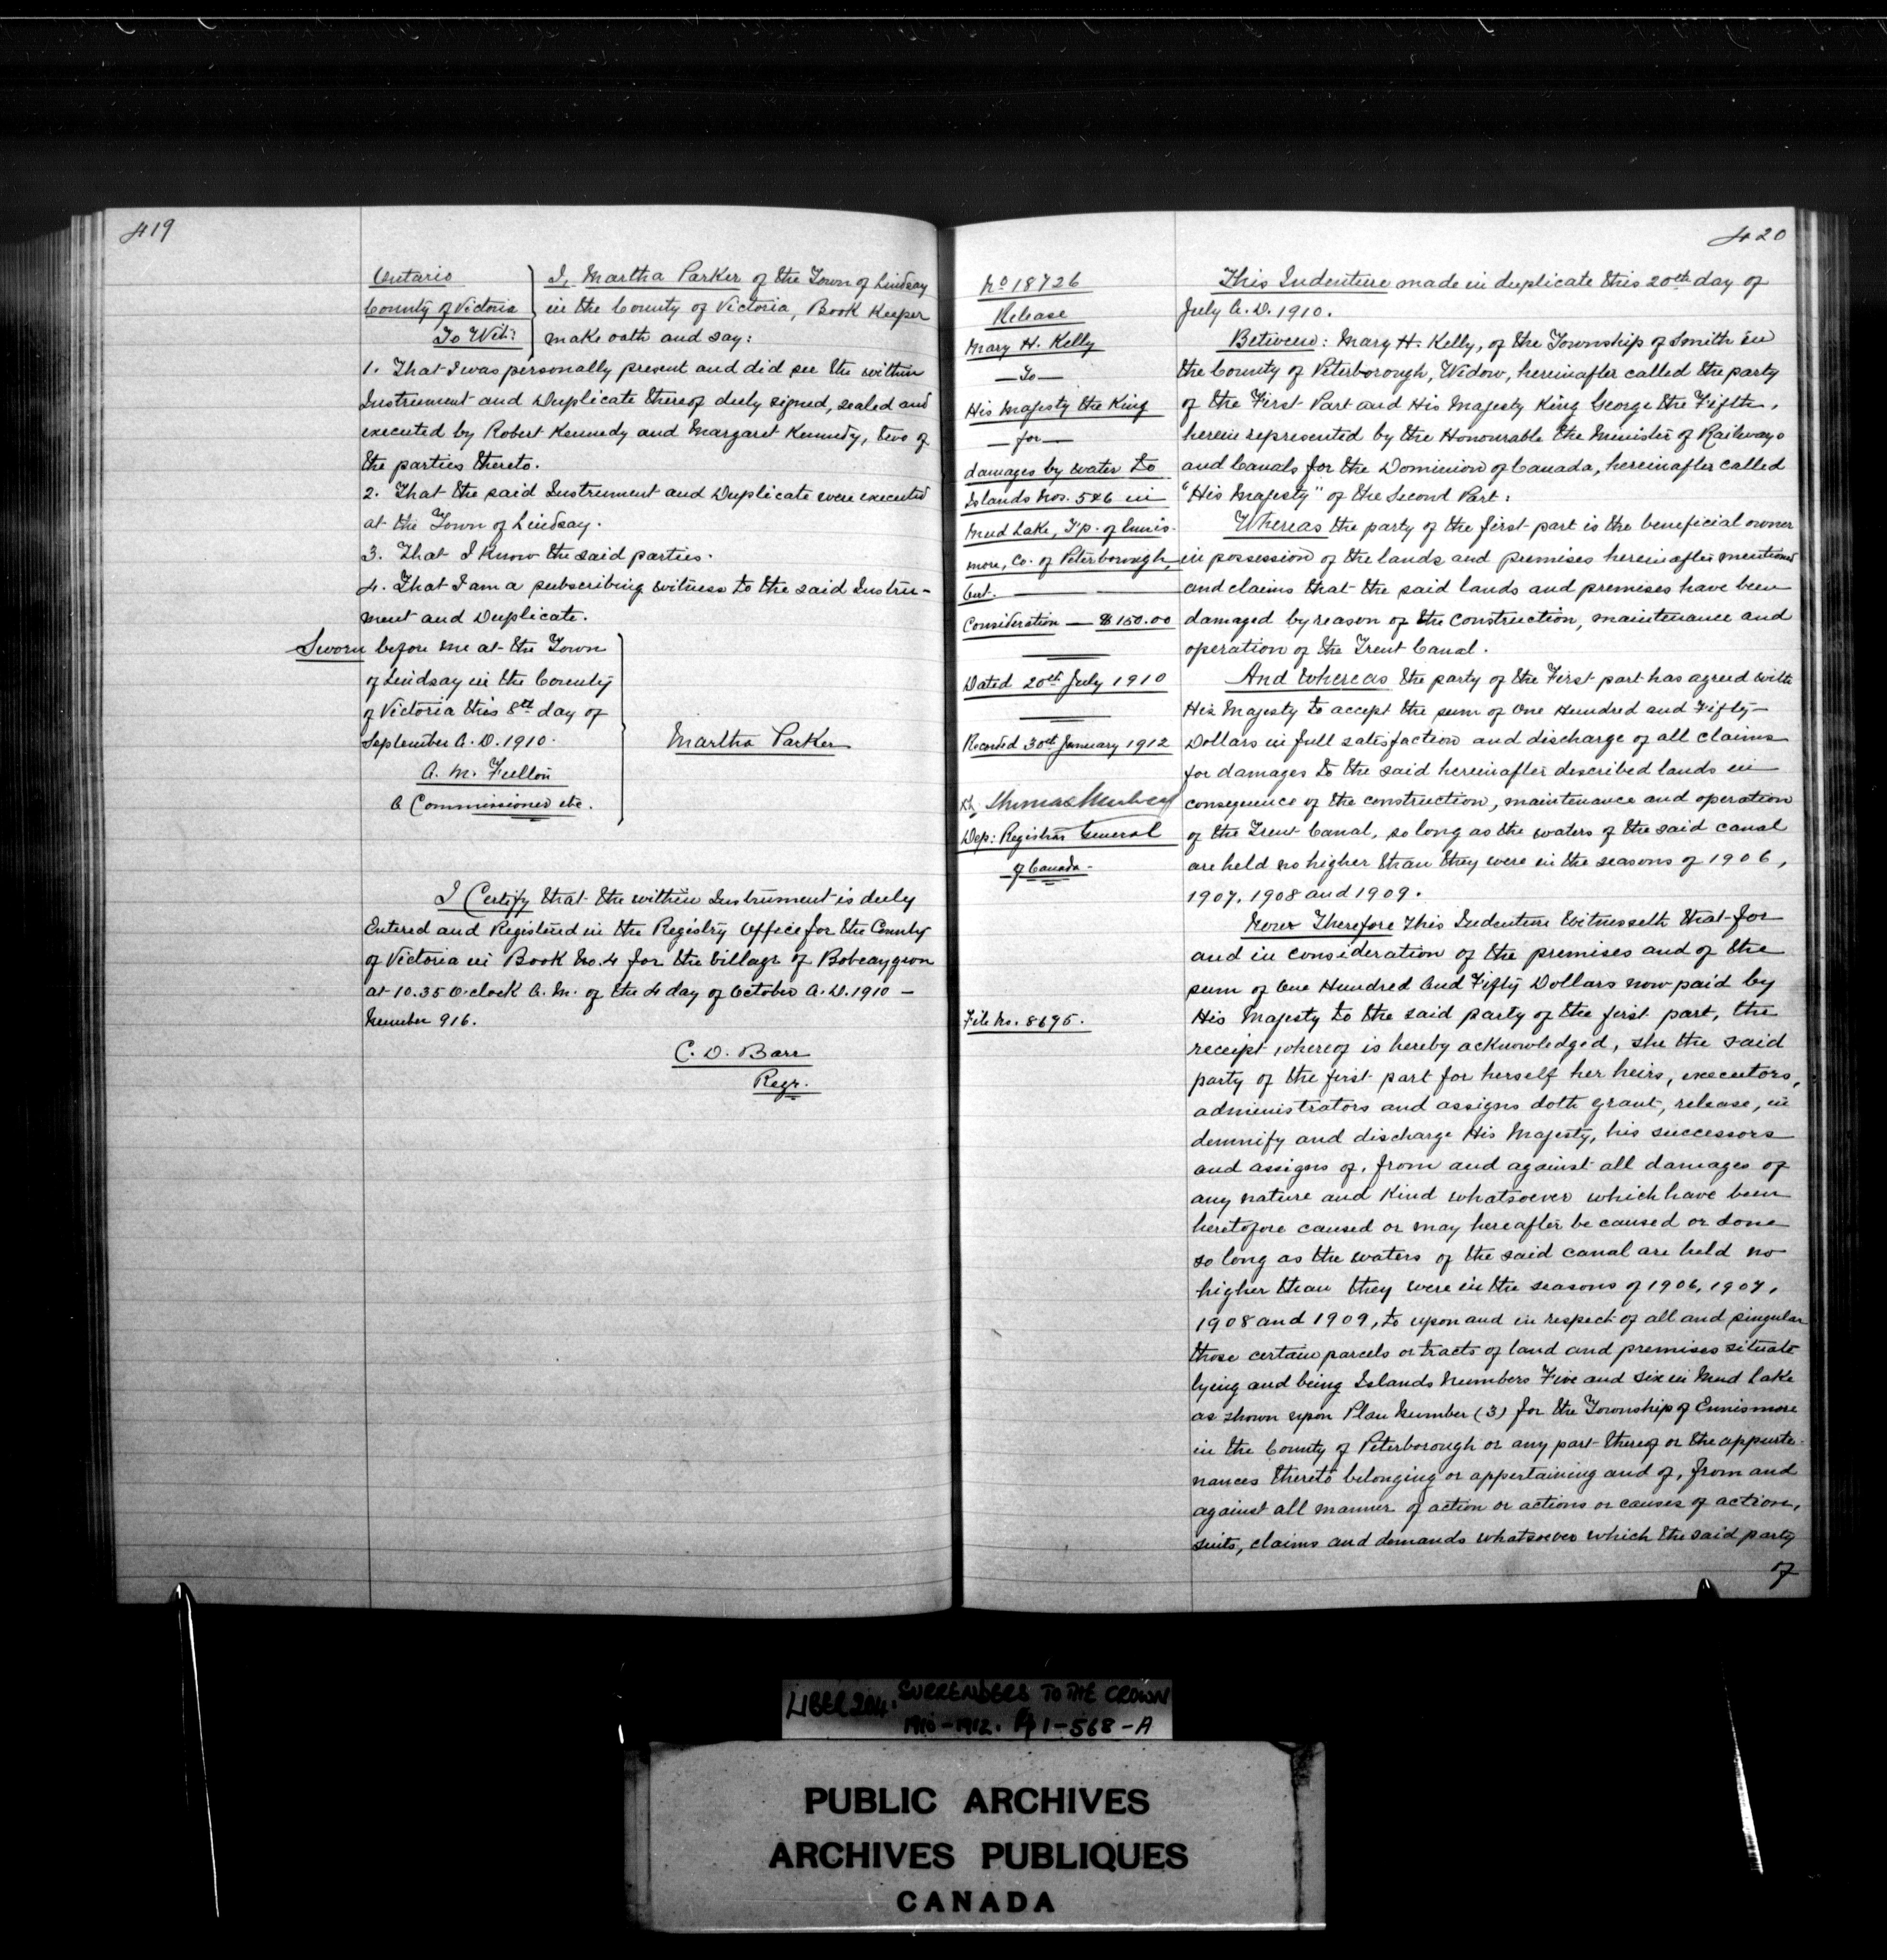 419
Ontario
County of Victoria
To Wit:
I, Martha Parker of the Town of Lindsay
in the County of Victoria, Book Keeper
make oath and say:
1. That I was personally present and did see the within
Instrument and Duplicate thereof duly signed, sealed and
executed by Robert Kennedy and Margaret Kennedy, two of
the parties thereto.
2. That the said Instrument and Duplicate were executed
at the Town of Lindsay.
3. That I know the said parties.
4. That I am a subscribing witness to the said Instru-
ment and Duplicate.
Sworn before me at the Town
of Lindsay in the County
of Victoria this 8th day of
September A.D. 1910.
A. M. Fulton
A Commissioner etc.
Martha Parker
I Certify that the within Instrument is duly
Entered and Registered in the Registry Office for the County
of Victoria in Book No. 4 for the Village of Bobcaygeon
at 10.35 O'clock A.M. of the 4 day of October A.D. 1910 —
Number 916.
C. D. Barr
Regr.
420
No 18726
Release
Mary H. Kelly
— To —
His Majesty the King
— for —
damages by water to
Islands Nos. 5 & 6 in
Mud Lake, Tp. of Ennis-
more, Co. of Peterborough,
Ont.
Consideration — $150.00
Dated 20th July 1910
Recorded 30th January 1912
Thomas Mulvey
Dep: Registrar General
of Canada.
File No. 8695.
This Indenture made in duplicate this 20th day of
July A.D. 1910.
Between: Mary H. Kelly, of the Township of Smith in
the County of Peterborough, Widow, hereinafter called the party
of the First Part and His Majesty King George the Fifth,
herein represented by the Honourable the Minister of Railways
and Canals for the Dominion of Canada, hereinafter called
"His Majesty" of the Second Part:
Whereas the party of the first part is the beneficial owner
in possession of the lands and premises hereinafter mentioned
and claims that the said lands and premises have been
damaged by reason of the construction, maintenance and
operation of the Trent Canal.
And Whereas the party of the First part has agreed with
His Majesty to accept the sum of One Hundred and Fifty —
Dollars in full satisfaction and discharge of all claims
for damages to the said hereinafter described lands in
consequence of the construction, maintenance and operation
of the Trent Canal, so long as the waters of the said canal
are held no higher than they were in the seasons of 1906,
1907, 1908 and 1909.
Now Therefore This Indenture Witnesseth that for
and in consideration of the premises and of the
sum of One Hundred and Fifty Dollars now paid by
His Majesty to the said party of the first part, the
receipt whereof is hereby acknowledged, she the said
party of the first part for herself her heirs, executors,
administrators and assigns doth grant, release, in
demnify and discharge His Majesty, his successors
and assigns of, from and against all damages of
any nature and kind whatsoever which have been
heretofore caused or may hereafter be caused or done
so long as the waters of the said canal are held no
higher than they were in the seasons of 1906, 1907,
1908 and 1909, to upon and in respect of all and singular
those certain parcels or tracts of land and premises situate
lying and being Islands Numbers Five and Six in Mud Lake
as shown upon Plan Number (3) for the Township of Ennismore
in the County of Peterborough or any part thereof or the appurte-
nances thereto belonging or appertaining and of, from and
against all manner of action or actions or causes of action,
suits, claims and demands whatsoever which the said party
of
LIBER 204. SURRENDERS TO THE CROWN
1910-1912. Pg 1-568-A
PUBLIC ARCHIVES
ARCHIVES PUBLIQUES
CANADA